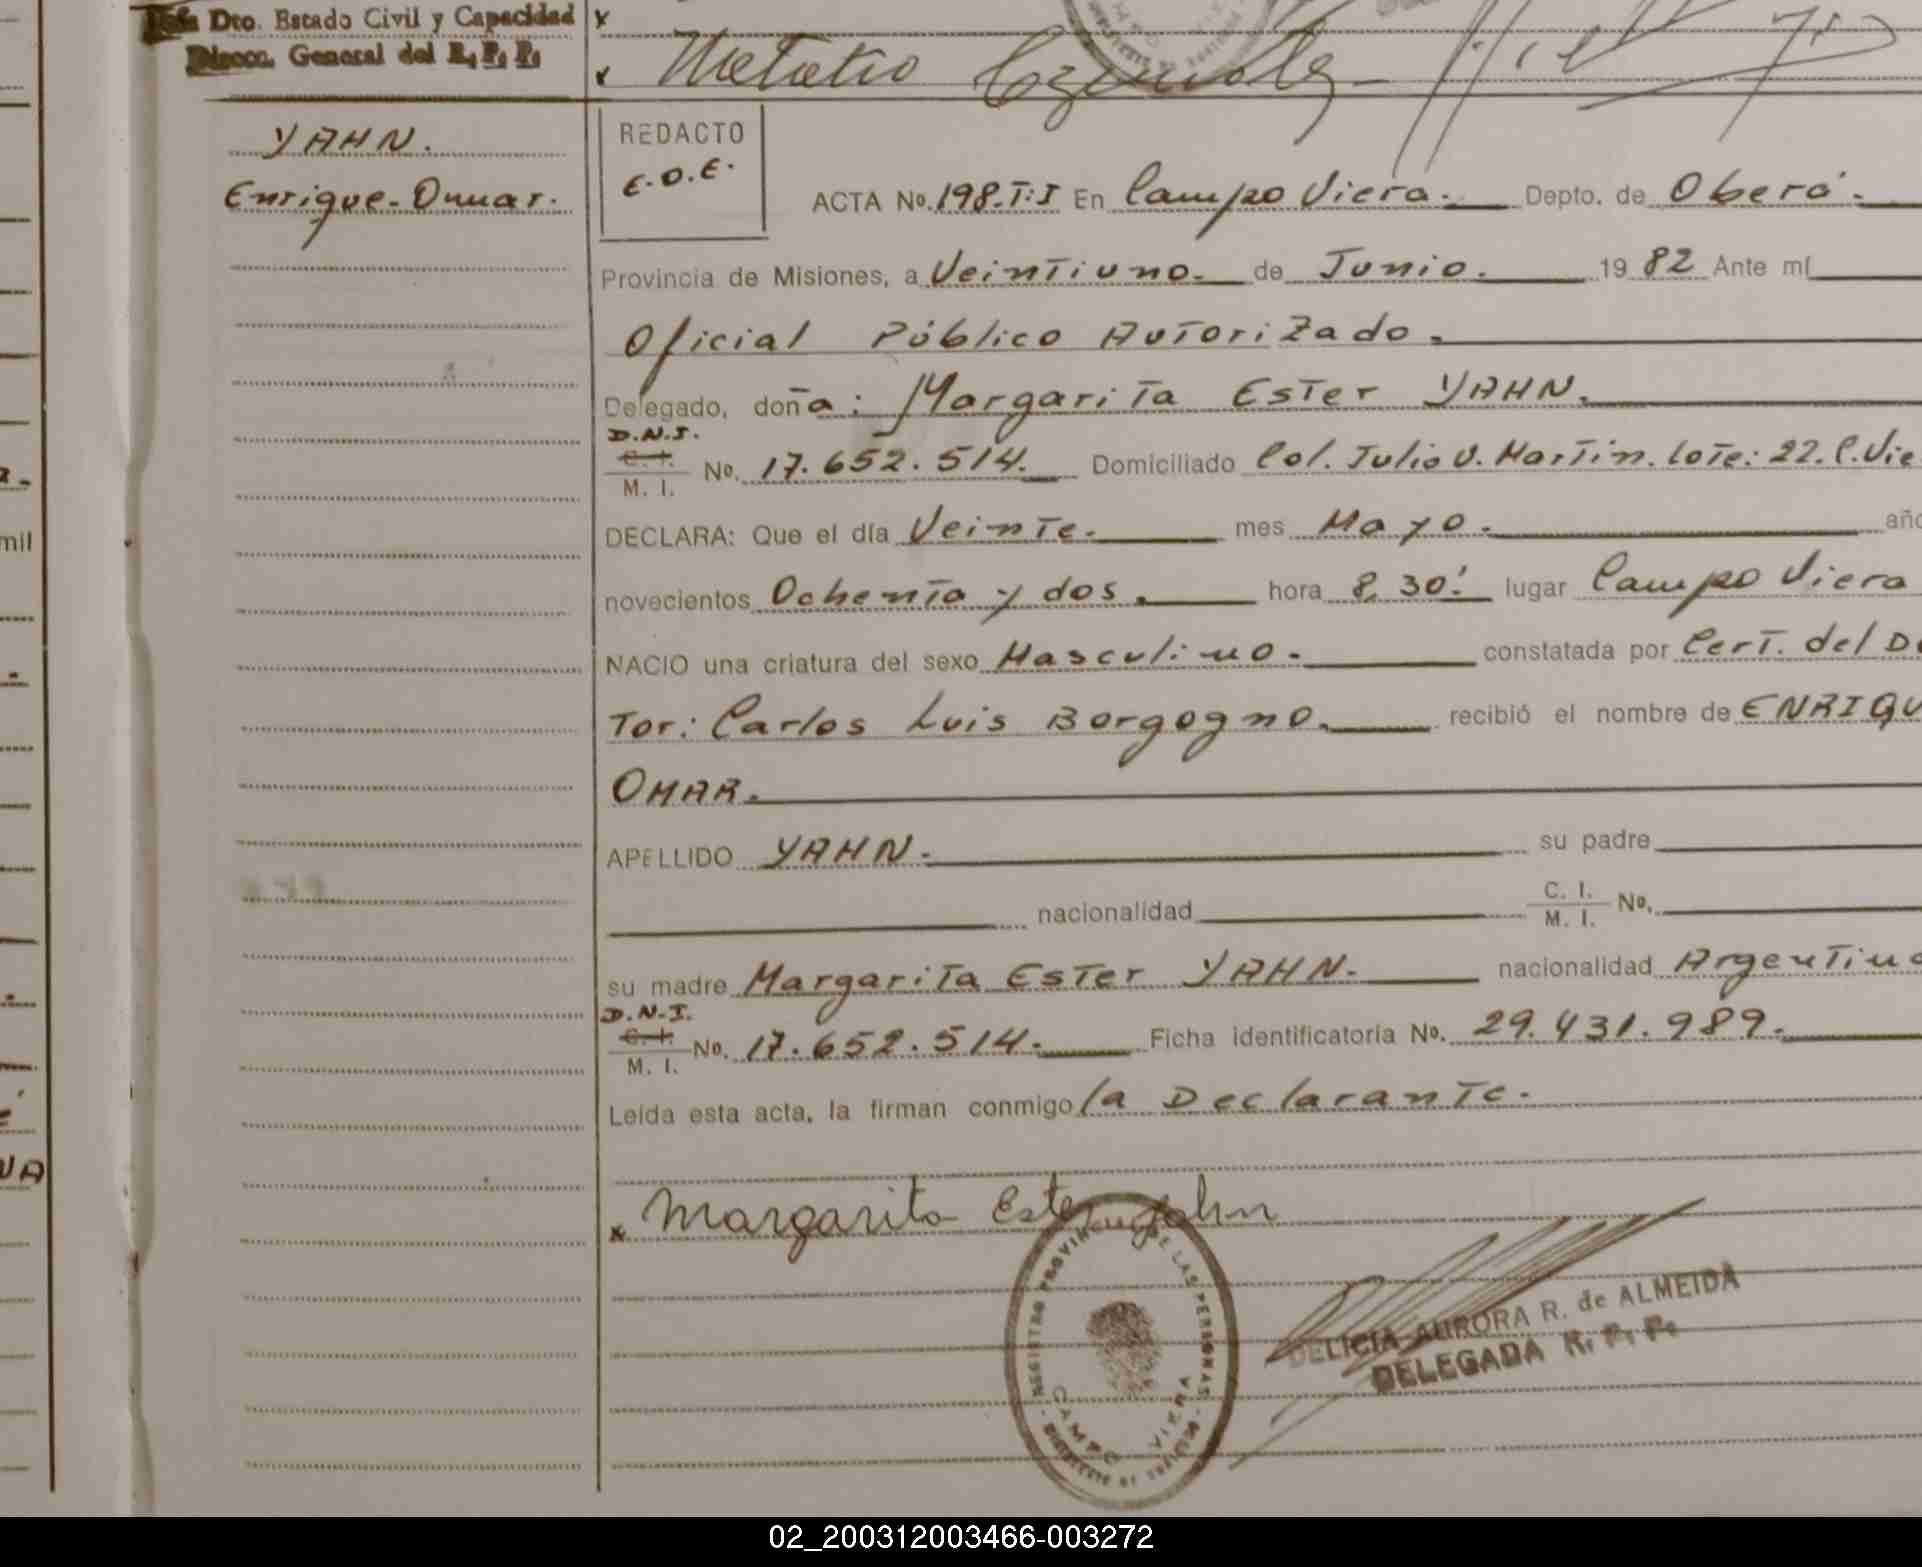 Jefa Dto. Estado Civil y Capacidad
Direcc. General del R. P. P.
YAHN.
Enrique-Omar.
REDACTO
E.O.E.
ACTA No. 198.T:I En Campo Viera. Depto. de Oberá.
Provincia de Misiones, a Veintiuno. de Junio. 19 82 Ante mí
Oficial Público Autorizado.
Delegado, doña: Margarita Ester YAHN.
D.N.I.
C. I.
M. I. No. 17.652.514. Domiciliado Col. Julio U. Martin. lote: 22. C. Vie
DECLARA: Que el día Veinte. mes Mayo. año
novecientos Ochenta y dos. hora 8,30! lugar Campo Viera
NACIO una criatura del sexo Masculino. constatada por Cert. del Do
Tor: Carlos Luis Borgogno. recibió el nombre de ENRIQU
OMAR.
APELLIDO YAHN. su padre
nacionalidad C. I.
M. I. No.
su madre Margarita Ester YAHN. nacionalidad Argentina
D.N.I.
C. I.
M. I. No. 17.652.514. Ficha identificatoria No. 29.431.989.
Leída esta acta, la firman conmigo la Declarante.
x Margarita Ester Jahn
REGISTRO PROVINCIAL DE LAS PERSONAS
CAMPO VIERA
DELICIA AURORA R. de ALMEIDA
DELEGADA R. P. P.
mil
02_200312003466-003272